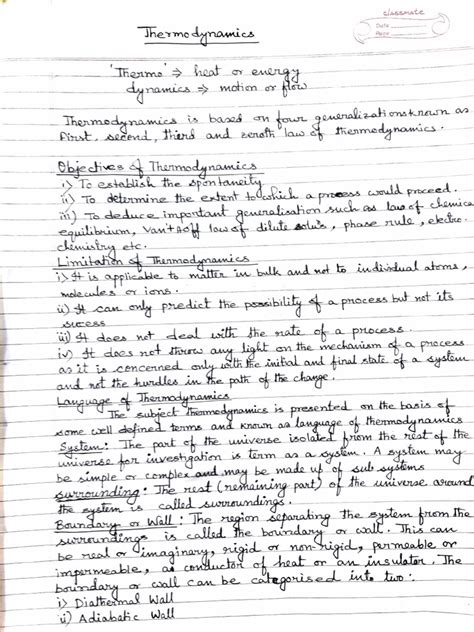 classmate
Date
Page
Thermodynamics
'Thermo' ⇒ heat or energy
dynamics ⇒ motion or flow
Thermodynamics is based on four generalizations known as
first, second, third and zeroth law of thermodynamics.
Objectives of Thermodynamics
i) To establish the spontaneity
ii) To determine the extent to which a process would proceed.
iii) To deduce important generalisation such as law of chemical
equilibrium, Van't Hoff law of dilute solns, phase rule, electro-
chemistry etc.
Limitation of Thermodynamics
i) It is applicable to matter in bulk and not to individual atoms,
molecules or ions.
ii) It can only predict the possibility of a process but not its
sucess
iii) It does not deal with the rate of a process.
iv) It does not throw any light on the mechanism of a process
as it is concerned only with the initial and final state of a system
and not the hurdles in the path of the change.
Language of Thermodynamics
The subject thermodynamics is presented on the basis of
some well defined terms and known as language of thermodynamics
System: The part of the universe isolated from the rest of the
universe for investigation is term as a system. A system may
be simple or complex and may be made up of sub systems
surrounding: The rest (remaining part) of the universe around
the system is called surroundings.
Boundary or Wall: The region separating the system from the
surroundings is called the boundary or wall. This can
be real or imaginery, rigid or non-rigid, permeable or
impermeable, a conductor of heat or an insulator. The
boundary or wall can be categorised into two:
i) Diathermal Wall
ii) Adiabatic Wall